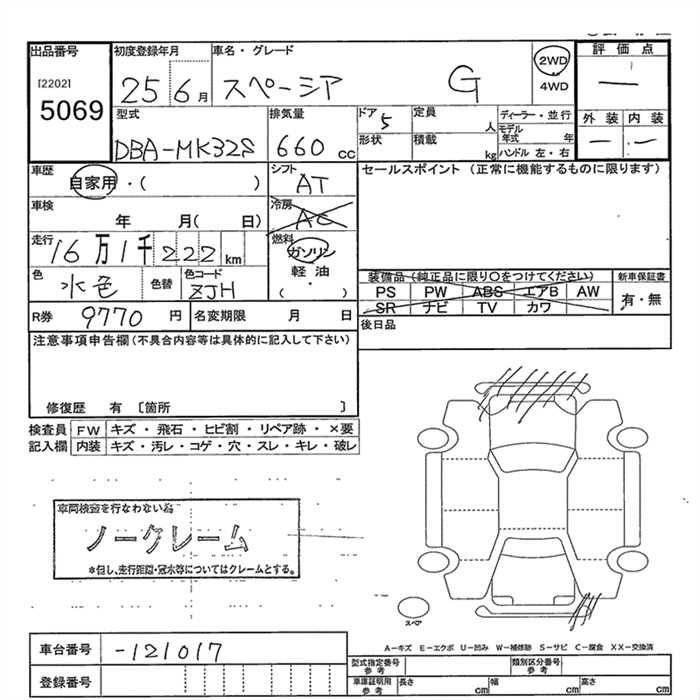 出品番号 初度登録年月 車名・グレード 2WD 評価点
[2202] 25 6月 スペーシア G 4WD —
5069
型式 排気量 ドア 5 定員 人 ディーラー・並行 外装 内装
DBA-MK32S 660cc 形状 積載 kg モデル年式 年 — · —
ハンドル 左・右
車歴 自家用・( ) シフト AT セールスポイント (正常に機能するものに限ります)
車検 年 月( 日) 冷房 AC
走行 16万1千222km 燃料 ガソリン
軽油
・
( )
色 水色 色替 色コード ZJH
装備品(純正品に限り○をつけてください) 新車保証書
PS PW ABS エアB AW 有・無
SR ナビ TV カワ
R券 9770円 名変期限 月 日 後日品
注意事項申告欄(不具合内容等は具体的に記入して下さい)
修復歴 有 〔箇所 〕
検査員 FW キズ・飛石・ヒビ割・リペア跡・×要
記入欄 内装 キズ・汚レ・コゲ・穴・スレ・キレ・破レ
車両検査を行なわない為
ノークレーム
*但し、走行距離・冠水等についてはクレームとする。
スペア
A-キズ E-エクボ U-凹み W-補修跡 S-サビ C-腐食 XX-交換済
車台番号 -121017 型式指定番号 参考 類別区分番号 参考
登録番号 車庫証明用 参考 長さ cm 幅 cm 高さ cm